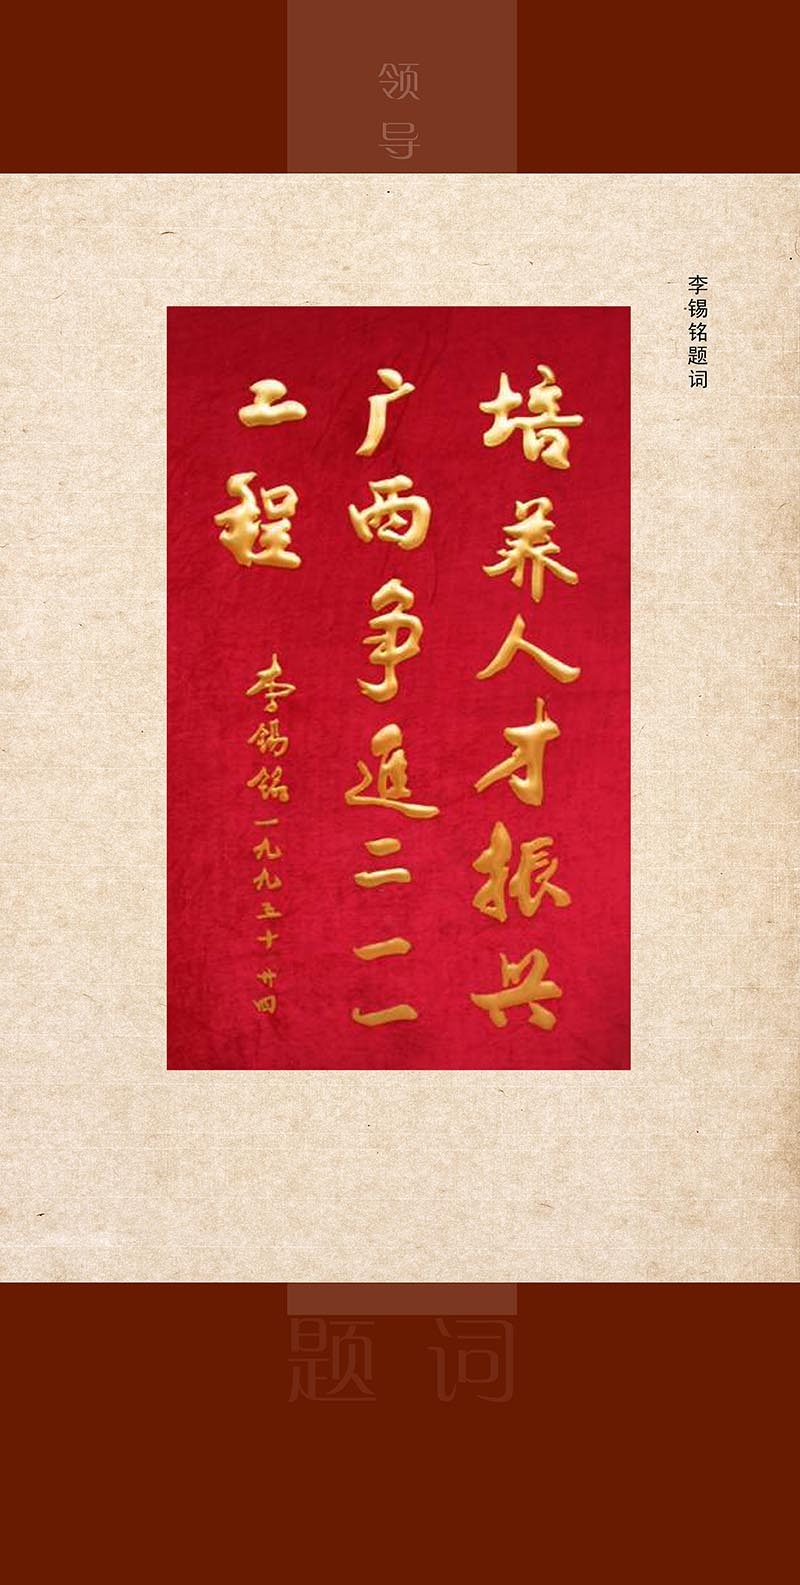 领导
李锡铭题词
培养人才振兴
广西争進二一一
工程
李锡铭一九九五十廿四
题词